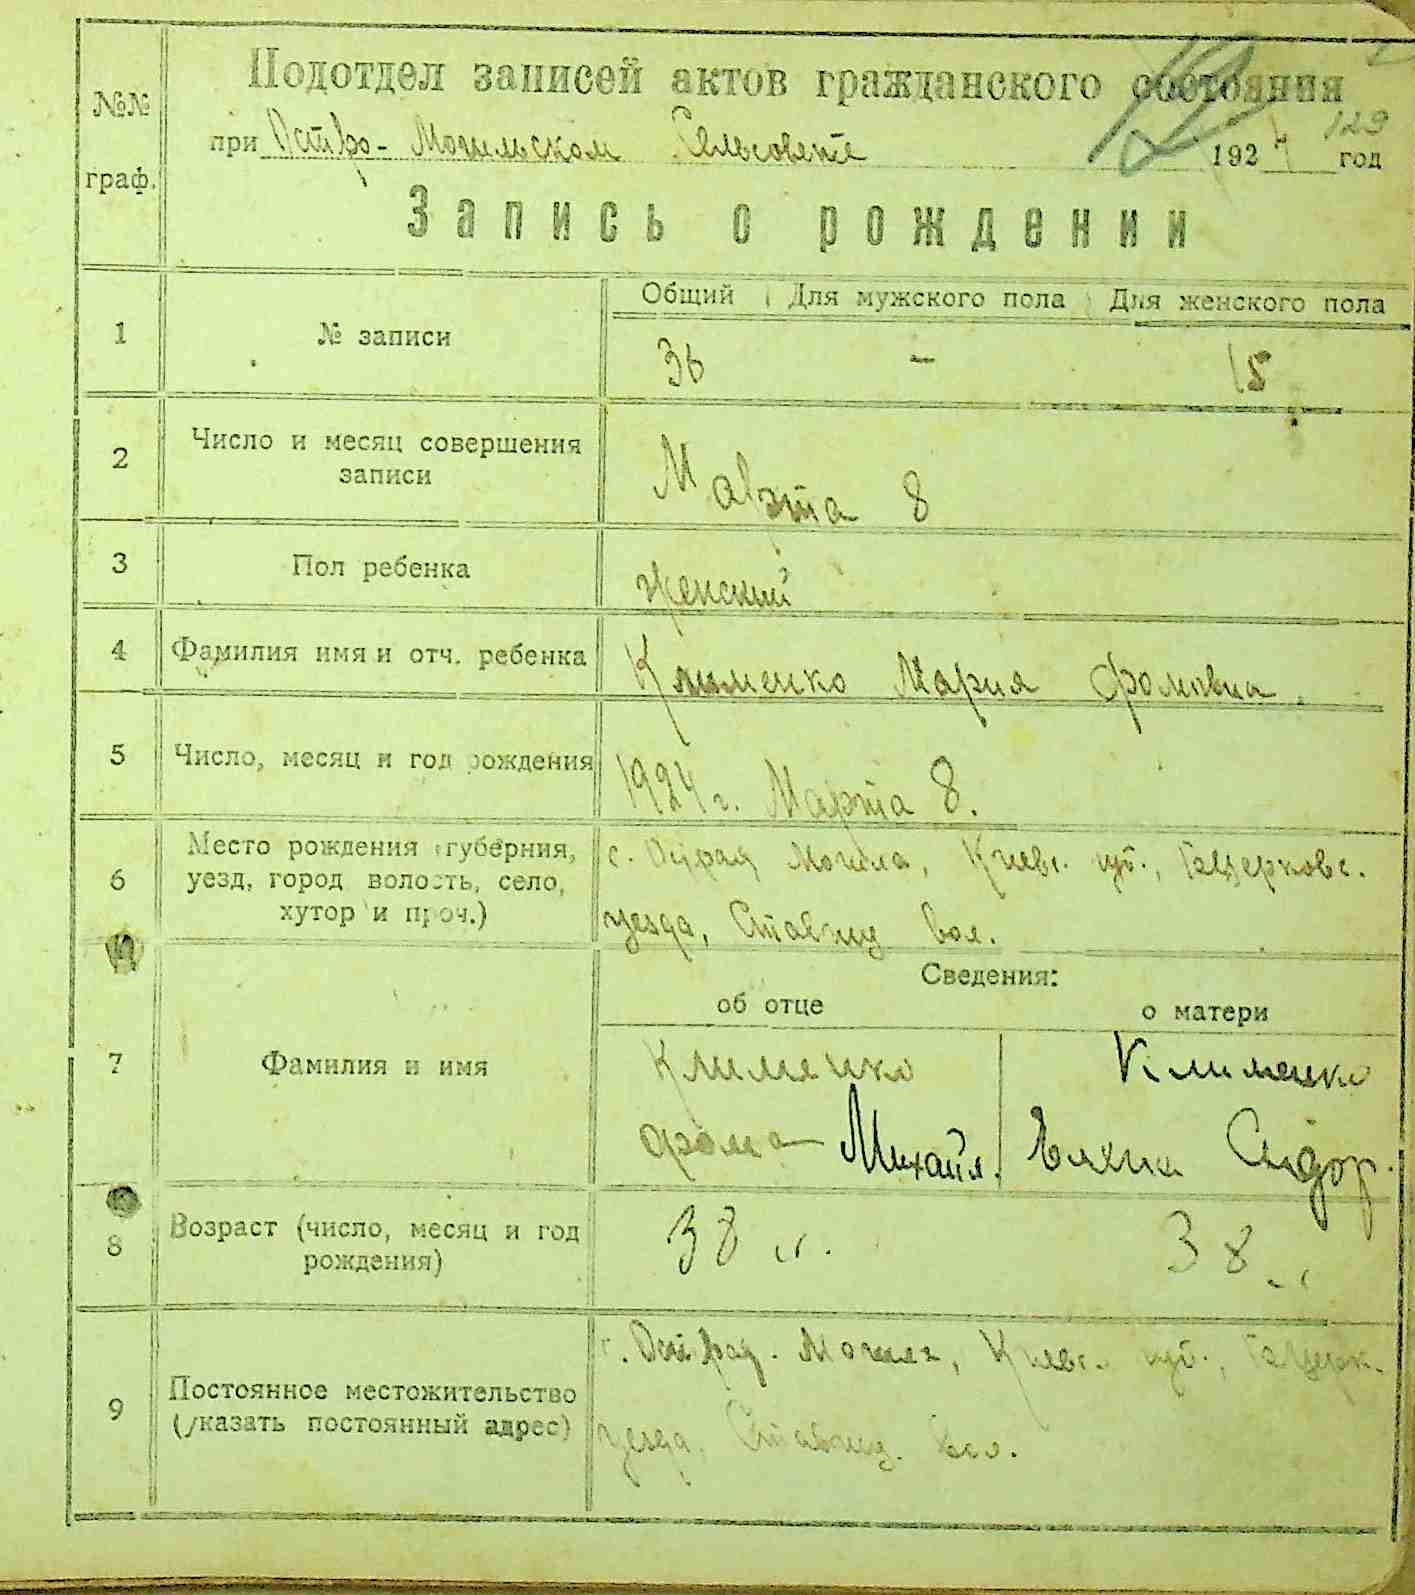 №№ граф.
Подотдел записей актов гражданского состояния
129
при Остро-Могильском Сельсовете 1924 год
Запись о рождении
Общий Для мужского пола Для женского пола
1 № записи 36 - 15
2 Число и месяц совершения записи Марта 8
3 Пол ребенка женский
4 Фамилия имя и отч. ребенка Клименко Мария Фомовна.
5 Число, месяц и год рождения 1924 г. Марта 8.
6 Место рождения (губерния, уезд, город волость, село, хутор и проч.)
с. Могила, Киевс. губ.,
уезда, Ставищ вол.
Сведения:
об отце о матери
7 Фамилия и имя Клименко Клименко
Фома Михайл. Елена Сидор.
8 Возраст (число, месяц и год рождения) 38 38
9 Постоянное местожительство (указать постоянный адрес)
Могила, Киевс. губ.,
уезда, Ставищ. вол.